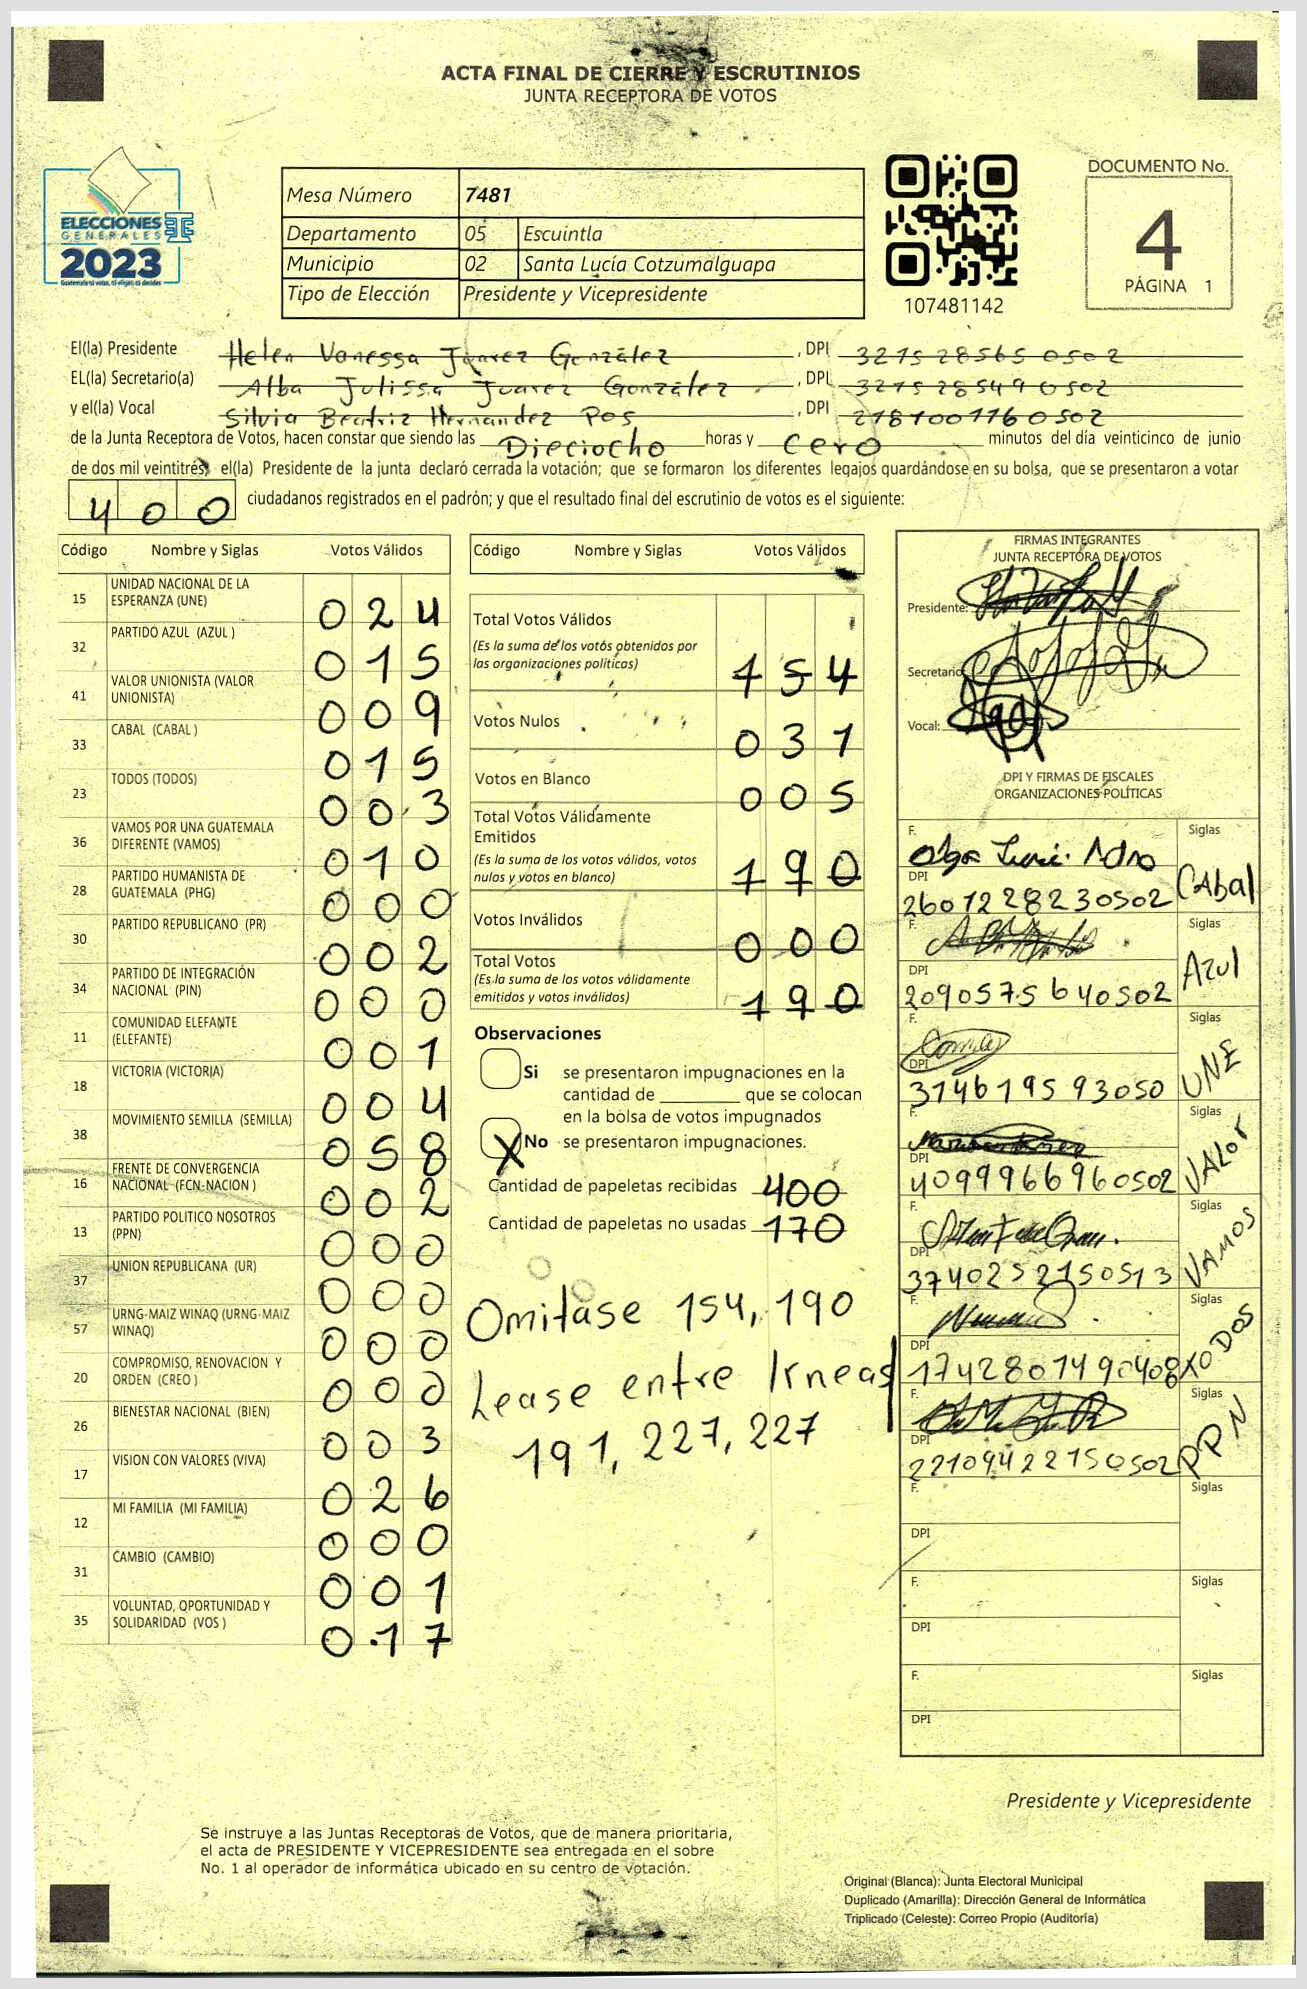 ACTA FINAL DE CIERRE Y ESCRUTINIOS
JUNTA RECEPTORA DE VOTOS
ELECCIONES
GENERALES
2023
Guatemala tú votas, tú eliges, tú decides
Mesa Número 7481
Departamento 05 Escuintla
Municipio 02 Santa Lucía Cotzumalguapa
Tipo de Elección Presidente y Vicepresidente
107481142
DOCUMENTO No.
4
PÁGINA 1
El(la) Presidente Helen Vanessa Juarez González, DPI 3215285650502
EL(la) Secretario(a) Alba Julissa Juarez González, DPI 3215285490502
y el(la) Vocal Silvia Beatriz Hernandez Pos, DPI 2181001160502
de la Junta Receptora de Votos, hacen constar que siendo las Dieciocho horas y cero minutos del día veinticinco de junio
de dos mil veintitrés, el(la) Presidente de la junta declaró cerrada la votación; que se formaron los diferentes legajos quardándose en su bolsa, que se presentaron a votar
400 ciudadanos registrados en el padrón; y que el resultado final del escrutinio de votos es el siguiente:
Código Nombre y Siglas Votos Válidos
15 UNIDAD NACIONAL DE LA
ESPERANZA (UNE) 024
32 PARTIDO AZUL (AZUL ) 015
41 VALOR UNIONISTA (VALOR
UNIONISTA) 009
33 CABAL (CABAL ) 015
23 TODOS (TODOS) 003
36 VAMOS POR UNA GUATEMALA
DIFERENTE (VAMOS) 010
28 PARTIDO HUMANISTA DE
GUATEMALA (PHG) 000
30 PARTIDO REPUBLICANO (PR) 002
34 PARTIDO DE INTEGRACIÓN
NACIONAL (PIN) 000
11 COMUNIDAD ELEFANTE
(ELEFANTE) 001
18 VICTORIA (VICTORIA) 004
38 MOVIMIENTO SEMILLA (SEMILLA) 058
16 FRENTE DE CONVERGENCIA
NACIONAL (FCN-NACION ) 002
13 PARTIDO POLITICO NOSOTROS
(PPN) 000
37 UNION REPUBLICANA (UR) 000
57 URNG-MAIZ WINAQ (URNG-MAIZ
WINAQ) 000
20 COMPROMISO, RENOVACION Y
ORDEN (CREO ) 000
26 BIENESTAR NACIONAL (BIEN) 003
17 VISION CON VALORES (VIVA) 026
12 MI FAMILIA (MI FAMILIA) 000
31 CAMBIO (CAMBIO) 001
35 VOLUNTAD, OPORTUNIDAD Y
SOLIDARIDAD (VOS ) 017
Código Nombre y Siglas Votos Válidos
Total Votos Válidos
(Es la suma de los votos obtenidos por
las organizaciones políticas) 154
Votos Nulos 031
Votos en Blanco 005
Total Votos Válidamente
Emitidos
(Es la suma de los votos válidos, votos
nulos y votos en blanco) 190
Votos Inválidos 000
Total Votos
(Es la suma de los votos válidamente
emitidos y votos inválidos) 190
Observaciones
Si se presentaron impugnaciones en la
cantidad de ________ que se colocan
en la bolsa de votos impugnados
X No se presentaron impugnaciones.
Cantidad de papeletas recibidas 400
Cantidad de papeletas no usadas 170
Omitase 154, 190
Lease entre lineas
191, 227, 227
FIRMAS INTEGRANTES
JUNTA RECEPTORA DE VOTOS
Presidente:
Secretario
Vocal:
DPI Y FIRMAS DE FISCALES
ORGANIZACIONES POLÍTICAS
F. Siglas
DPI
2607228230502 CAbal
F. Siglas
DPI
2090575640502 Azul
F. Siglas
DPI
374619593050 UNE
F. Siglas
DPI
4099966960502 VALOR
F. Siglas
DPI
3740252150513 VAMOS
F. Siglas
DPI
1742807490408 TODOS
F. Siglas
DPI
22109422150502 PPN
F. Siglas
DPI
F. Siglas
DPI
F. Siglas
DPI
Presidente y Vicepresidente
Se instruye a las Juntas Receptoras de Votos, que de manera prioritaria,
el acta de PRESIDENTE Y VICEPRESIDENTE sea entregada en el sobre
No. 1 al operador de informática ubicado en su centro de votación.
Original (Blanca): Junta Electoral Municipal
Duplicado (Amarilla): Dirección General de Informática
Triplicado (Celeste): Correo Propio (Auditoría)